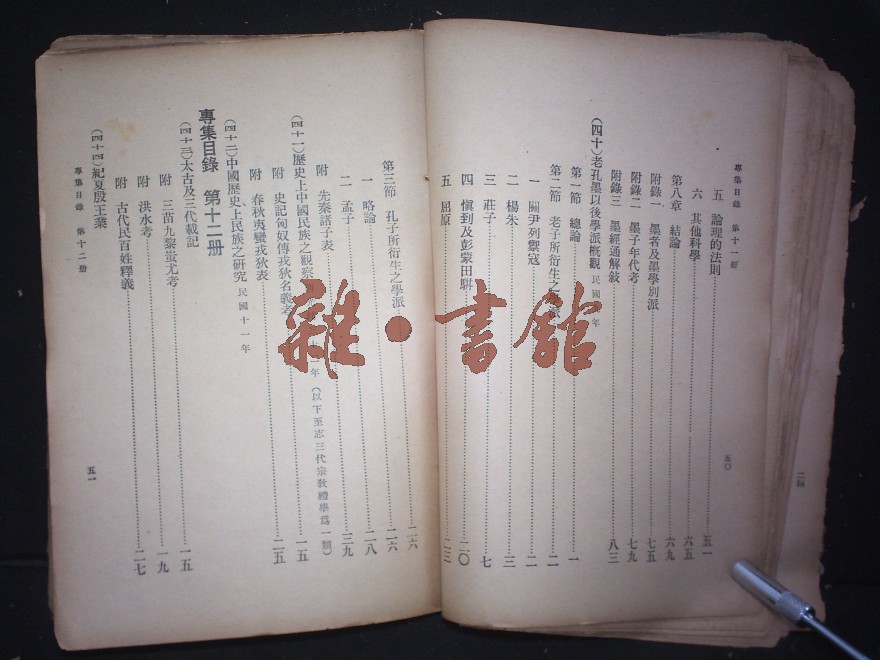 專集目錄 第十一册
五 論理的法則 五一
六 其他科學 六五
第八章 結論 六九
附錄一 墨者及墨學別派 七五
附錄二 墨子年代考 七九
附錄三 墨經通解敍 八三
(四十)老孔墨以後學派概觀 民國 年
第一節 總論 一
第二節 老子所衍生之學派 二
一 關尹列禦寇 二
二 楊朱 三
三 莊子 七
四 愼到及彭蒙田騈 二〇
五 屈原 二三
五〇
二四
第三節 孔子所衍生之學派 二六
一 略論 二八
二 孟子 三九
附 先秦諸子表
(四十一)歷史上中國民族之觀察 十一年(以下至志三代宗敎禮學爲一類)
附 史記匈奴傳戎狄名義考 一五
附 春秋夷蠻戎狄表 二五
(四十二)中國歷史上民族之研究 民國十一年
專集目錄 第十二册
(四十三)太古及三代載記
附 三苗九黎蚩尤考 一五
附 洪水考 一九
附 古代民百姓釋義 二七
(四十四)紀夏殷王業
專集目錄 第十二册
五一
雜·書館